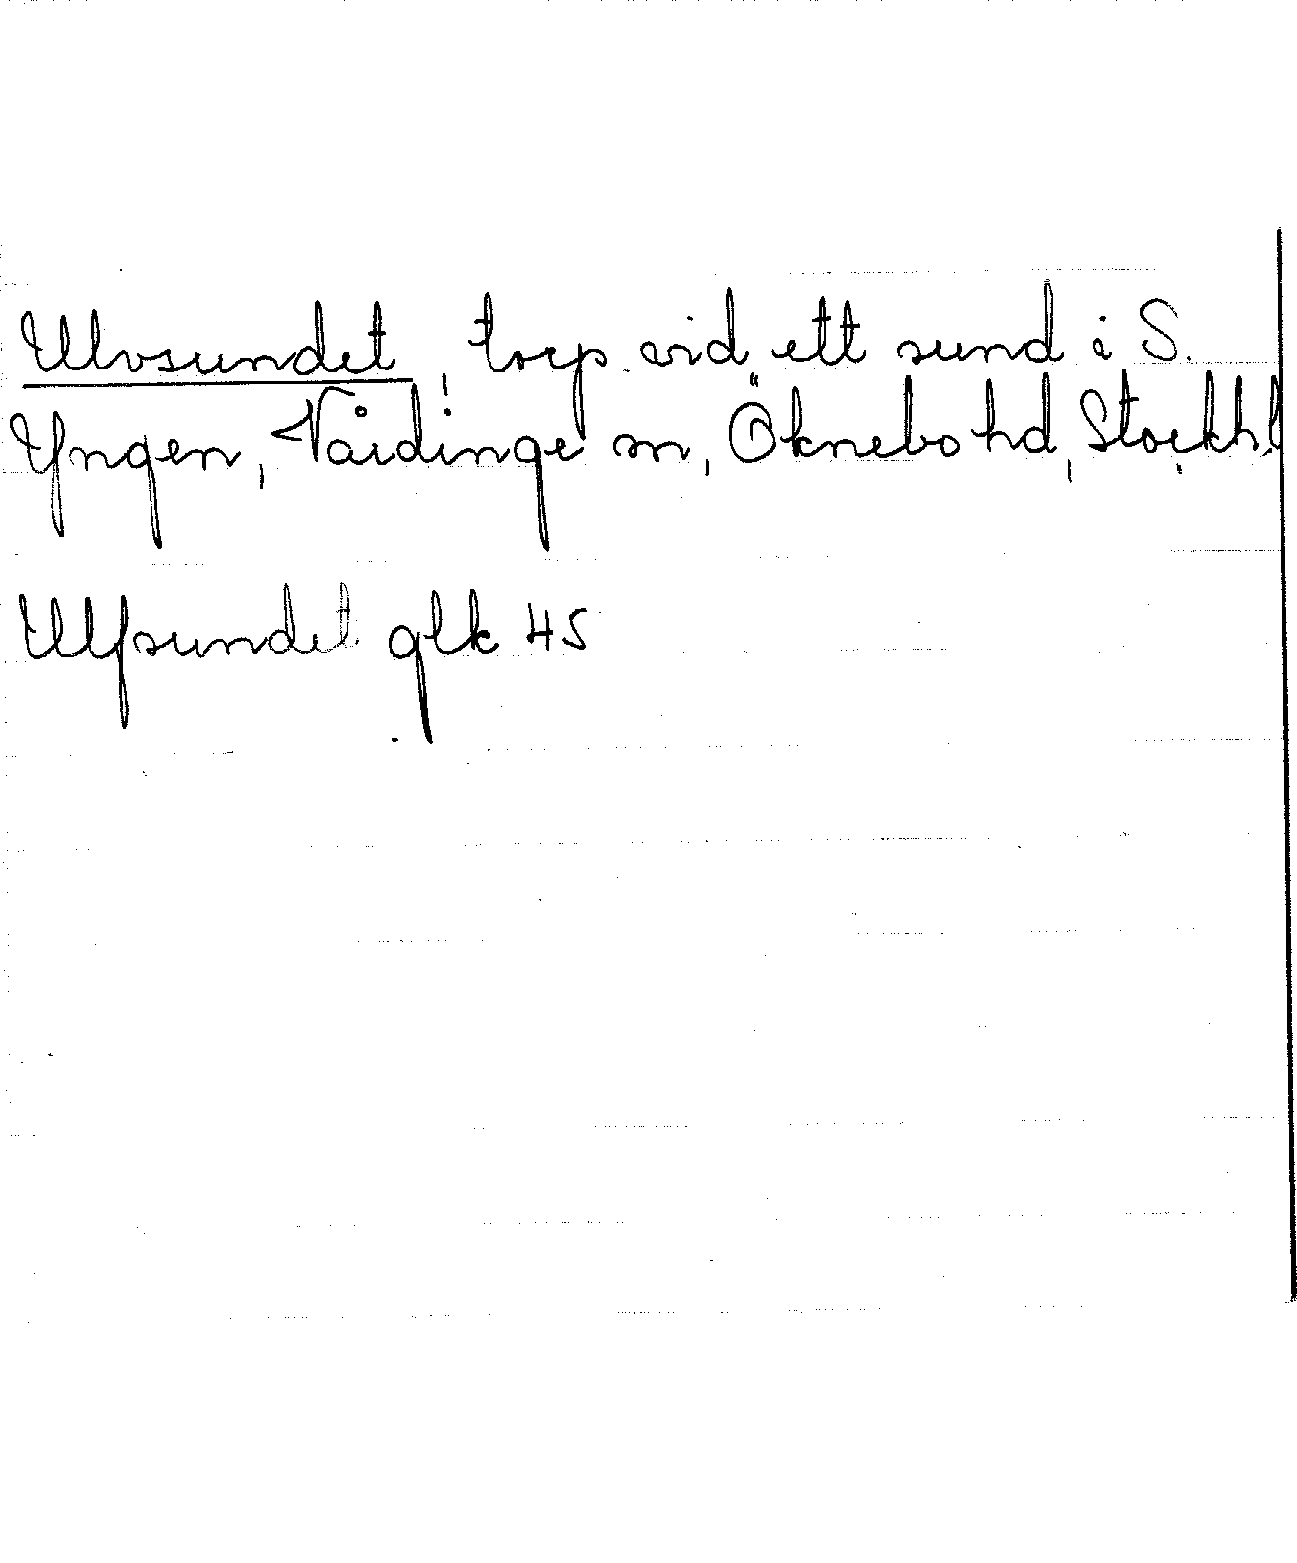 Ulvsundet, torp vid ett sund i S.
Yngen, Vårdinge sn, Öknebo hd, Stockh. l
Ulfsundet glk 45